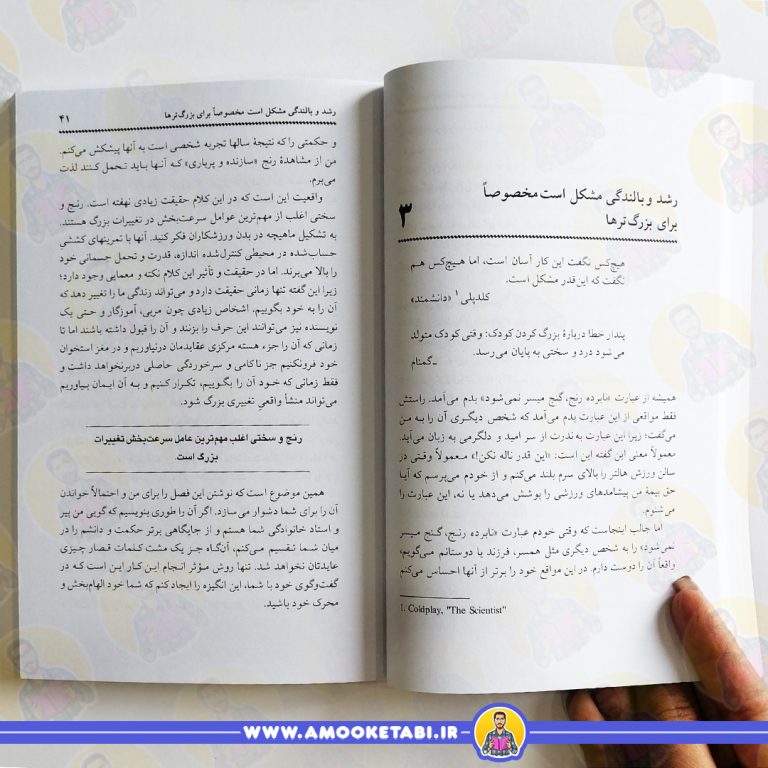 رشد و بالندگی مشکل است مخصوصاً
برای بزرگ‌ترها
۳
هیچ‌کس نگفت این کار آسان است، اما هیچ‌کس هم
نگفت که این‌قدر مشکل است.
کلدپلی۱ «دانشمند»
پندار خطا دربارهٔ بزرگ کردن کودک: وقتی کودک متولد
می‌شود درد و سختی به پایان می‌رسد.
ـ گمنام
همیشه از عبارت «نابرده رنج، گنج میسر نمی‌شود» بدم می‌آمد. راستش
فقط مواقعی از این عبارت بدم می‌آمد که شخص دیگری آن را به من
می‌گفت؛ زیرا این عبارت به‌ندرت از سر امید و دلگرمی به زبان می‌آید.
معمولاً معنی این گفته این است: «این قدر ناله نکن!» معمولاً وقتی در
سالن ورزش هالتر را بالای سرم بلند می‌کنم و از خودم می‌پرسم که آیا
حق بیمهٔ من پیشامدهای ورزشی را پوشش می‌دهد یا نه، این عبارت را
می‌شنوم.
اما جالب اینجاست که وقتی خودم عبارت «نابرده رنج، گنج میسر
نمی‌شود» را به شخص دیگری مثل همسر، فرزند یا دوستانم می‌گویم،
واقعاً آن را دوست دارم. در این مواقع خود را برتر از آنها احساس می‌کنم
1. Coldplay, "The Scientist"
رشد و بالندگی مشکل است مخصوصاً برای بزرگ‌ترها ۴۱
و حکمتی را که نتیجهٔ سالها تجربه شخصی است به آنها پیشکش می‌کنم.
من از مشاهدهٔ رنج «سازنده و پرباری» که آنها باید تحمل کنند لذت
می‌برم.
واقعیت این است که در این کلام حقیقت زیادی نهفته است. رنج و
سختی اغلب از مهم‌ترین عوامل سرعت‌بخش در تغییرات بزرگ هستند.
به تشکیل ماهیچه در بدن ورزشکاران فکر کنید. آنها با تمرینهای کششی
حساب‌شده در محیطی کنترل‌شده اندازه، قدرت و تحمل جسمانی خود
را بالا می‌برند. اما در حقیقت و تأثیر این کلام نکته و معمایی وجود دارد؛
زیرا این گفته تنها زمانی حقیقت دارد و می‌تواند زندگی ما را تغییر دهد که
آن را به خود بگوییم. اشخاص زیادی چون مربی، آموزگار و حتی یک
نویسنده نیز می‌توانند این حرف را بزنند و آن را قبول داشته باشند اما تا
زمانی که آن را جزء هسته مرکزی عقایدمان درنیاوریم و در مغز استخوان
خود فرونکنیم جز ناکامی و سرخوردگی حاصلی دربرنخواهد داشت و
فقط زمانی که خود آن را بگوییم، تکرار کنیم و به آن ایمان بیاوریم
می‌تواند منشأ واقعیِ تغییری بزرگ شود.
رنج و سختی اغلب مهم‌ترین عامل سرعت‌بخش تغییرات
بزرگ است.
همین موضوع است که نوشتن این فصل را برای من و احتمالاً خواندن
آن را برای شما دشوار می‌سازد. اگر آن را طوری بنویسیم که گویی من پیر
و استاد خانوادگی شما هستم و از جایگاهی برتر حکمت و دانشم را در
میان شما تقسیم می‌کنم، آن‌گاه جز یک مشت کلمات قصار چیزی
عایدتان نخواهد شد. تنها روش مؤثر انجام این کار این است که در
گفت‌وگوی خود با شما، این انگیزه را ایجاد کنم که شما خود الهام‌بخش و
محرک خود باشید.
WWW.AMOOKETABI.IR